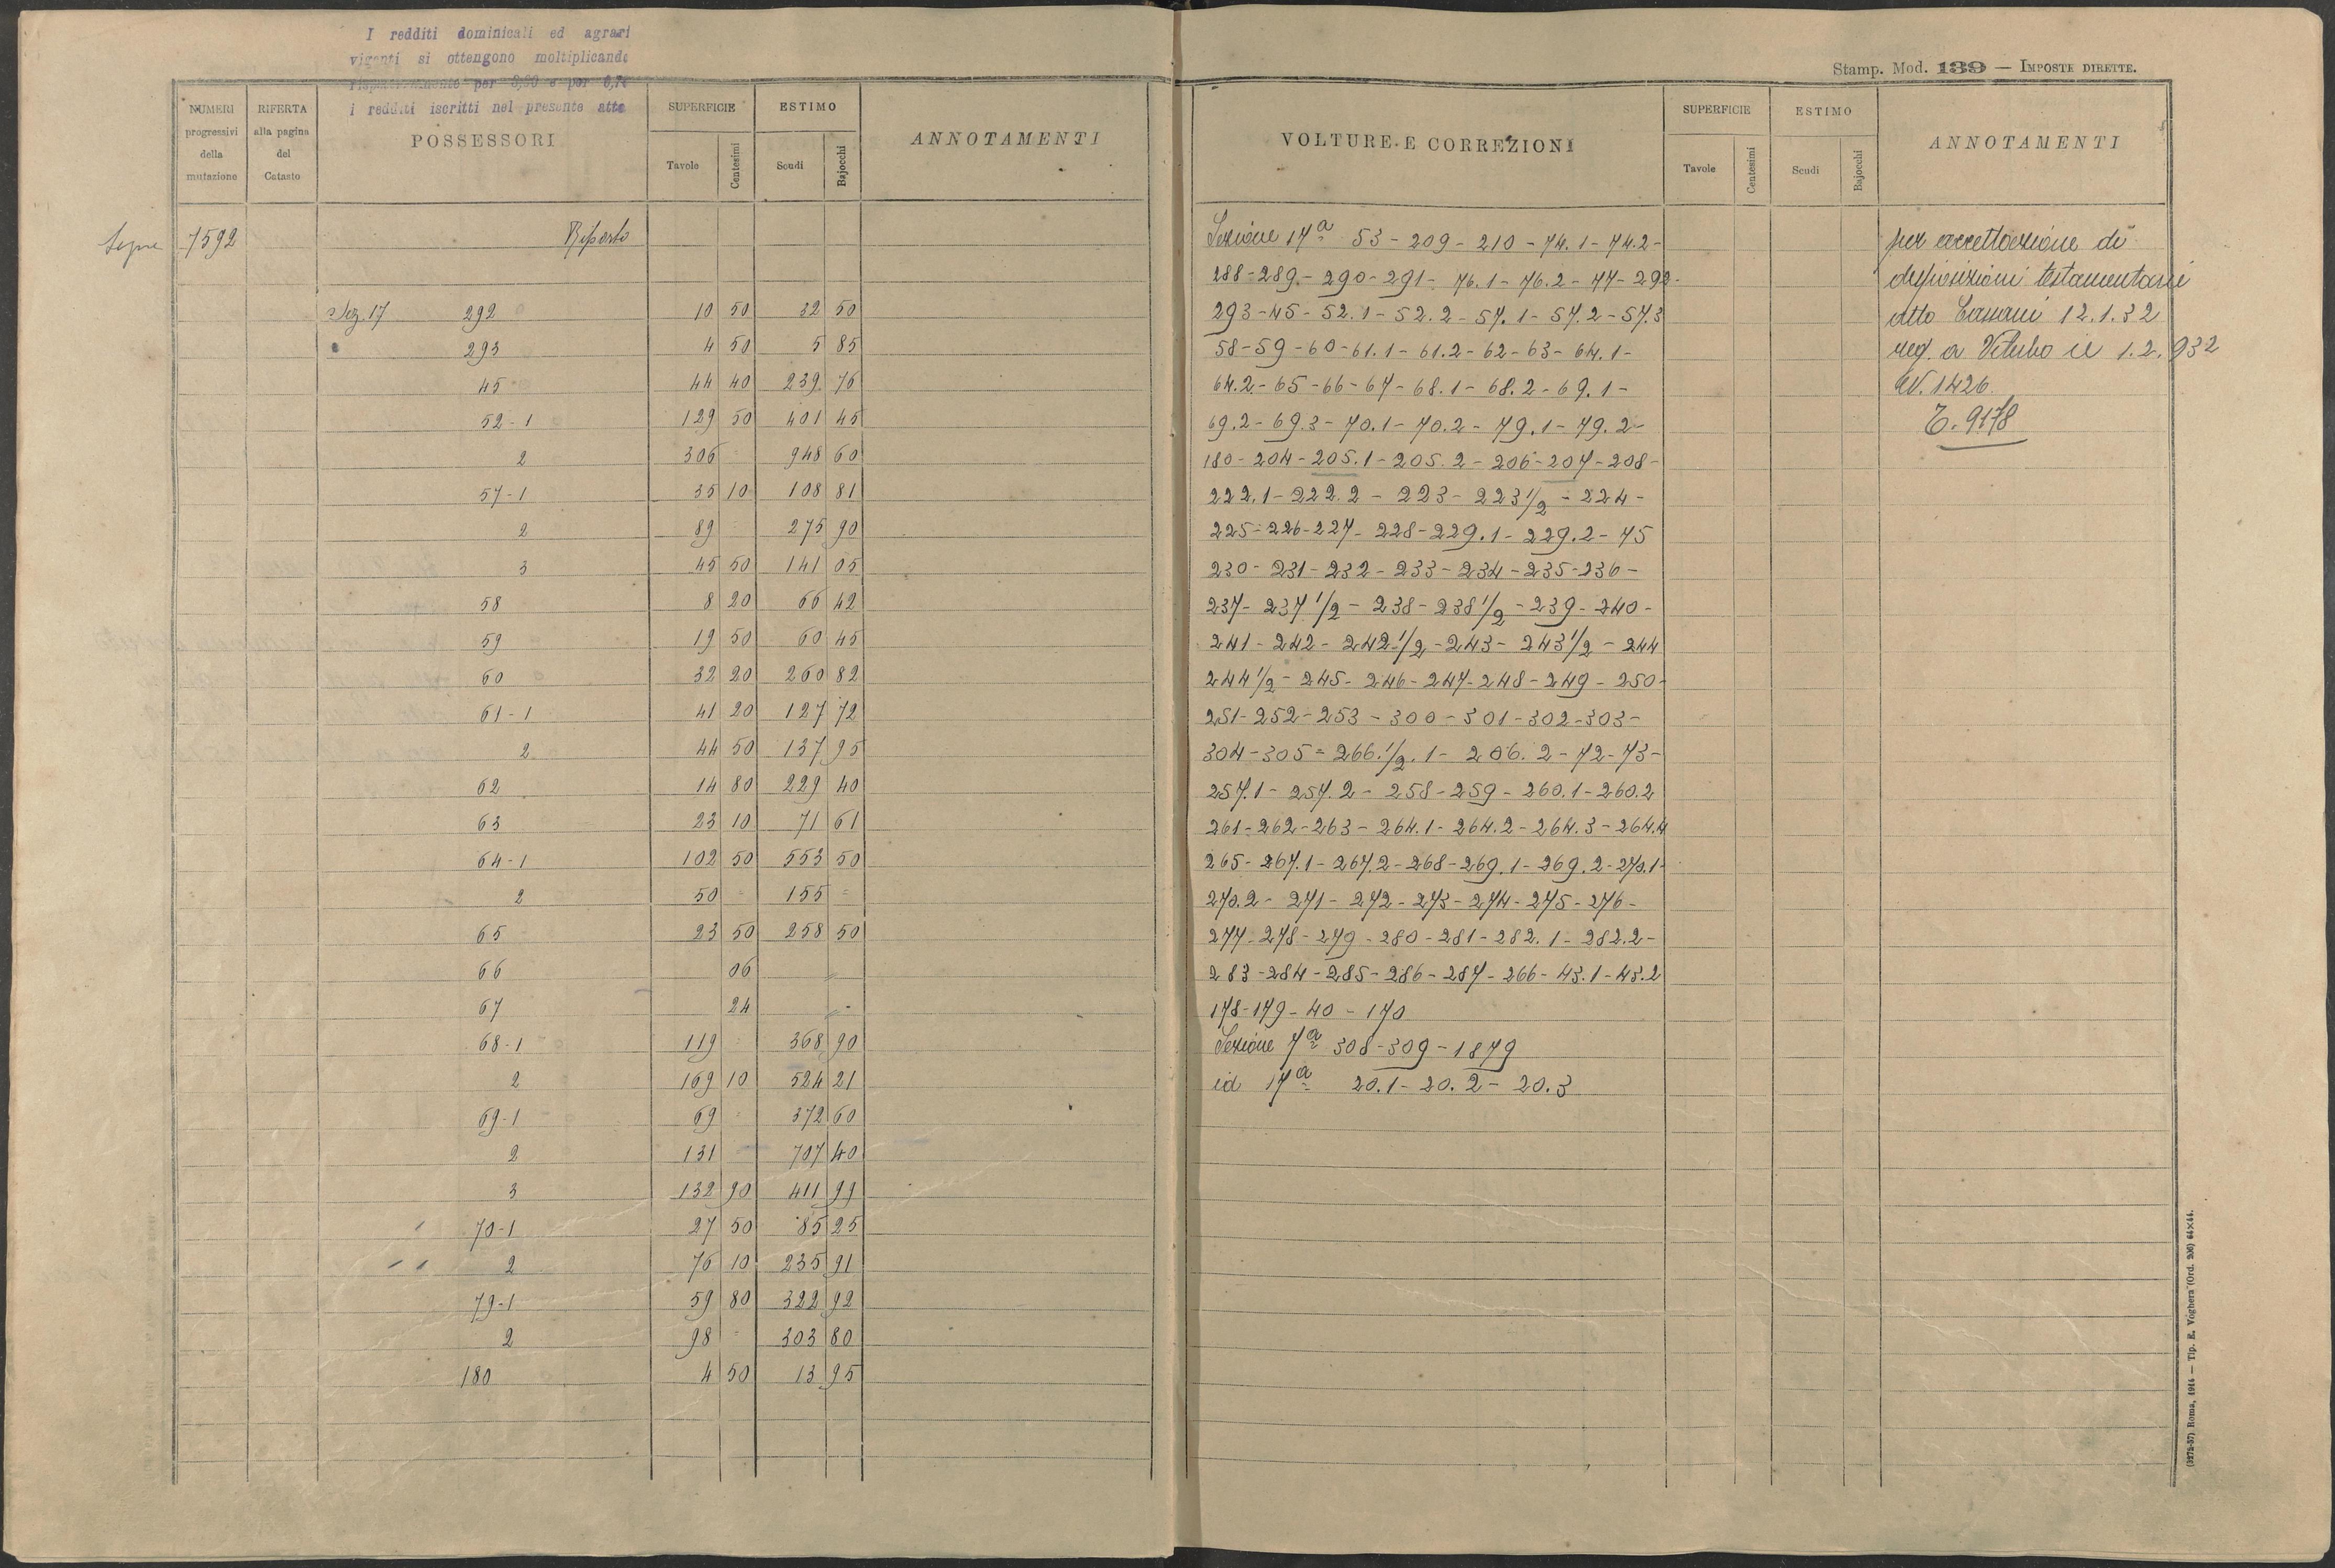 I redditi dominicali ed agrari
vigenti si ottengono moltiplicando
rispettivamente per e per
i redditi iscritti nel presente atto
NUMERI progressivi della mutazione
RIFERTA alla pagina del Catasto
POSSESSORI
SUPERFICIE
Tavole
Centesimi
ESTIMO
Scudi
Bajocchi
ANNOTAMENTI
Segue 7592 Riporto
Sez. 17 292 10 50 32 50
293 4 50 5 85
45 44 40 239 76
52-1 129 50 401 45
2 306 = 948 60
57-1 35 10 108 81
2 89 = 275 90
3 45 50 141 05
58 8 20 66 42
59 19 50 60 45
60 32 20 260 82
61-1 41 20 127 72
2 44 50 137 95
62 14 80 229 40
63 23 10 71 61
64-1 102 50 553 50
2 50 = 155 =
65 23 50 258 50
66 06 =
67 24 =
68-1 119 = 368 90
2 169 10 524 21
69-1 69 = 372 60
2 131 707 40
3 132 90 411 99
70-1 27 50 85 25
2 76 10 235 91
79-1 59 80 322 92
2 98 = 303 80
180 4 50 13 95
Stamp. Mod. 139 — IMPOSTE DIRETTE.
VOLTURE E CORREZIONI
SUPERFICIE
Tavole
Centesimi
ESTIMO
Scudi
Bajocchi
ANNOTAMENTI
Sezione 17a 53-209-210-74.1-74.2-
288-289-290-291-76.1-76.2-77-292-
293-45-52.1-52.2-57.1-57.2-57.3
58-59-60-61.1-61.2-62-63-64.1-
64.2-65-66-67-68.1-68.2-69.1-
69.2-69.3-70.1-70.2-79.1-79.2-
180-204-205.1-205.2-206-207-208-
222.1-222.2-223-223 1/2-224-
225-226-227-228-229.1-229.2-75
230-231-232-233-234-235-236-
237-237 1/2-238-238 1/2-239-240-
241-242-242 1/2-243-243 1/2-244
244 1/2-245-246-247-248-249-250-
251-252-253-300-301-302-303-
304-305=266.1/2.1-206.2-72-73-
257.1-257.2-258-259-260.1-260.2
261-262-263-264.1-264.2-264.3-264.4
265-267.1-267.2-268-269.1-269.2-270.1-
270.2-271-272-273-274-275-276-
277-278-279-280-281-282.1-282.2-
283-284-285-286-287-266-43.1-43.2
178-179-40-170
Sezione 7a 308-309-1879
id 17a 20.1-20.2-20.3
per accettazione di
disposizioni testamentarie
atto Cassani 12.1.32
reg. a Viterbo il 1.2.932
N. 1426
T. 9178
(3275-37) Roma, 1914 — Tip. E. Voghera (Ord. 206) 64×44.